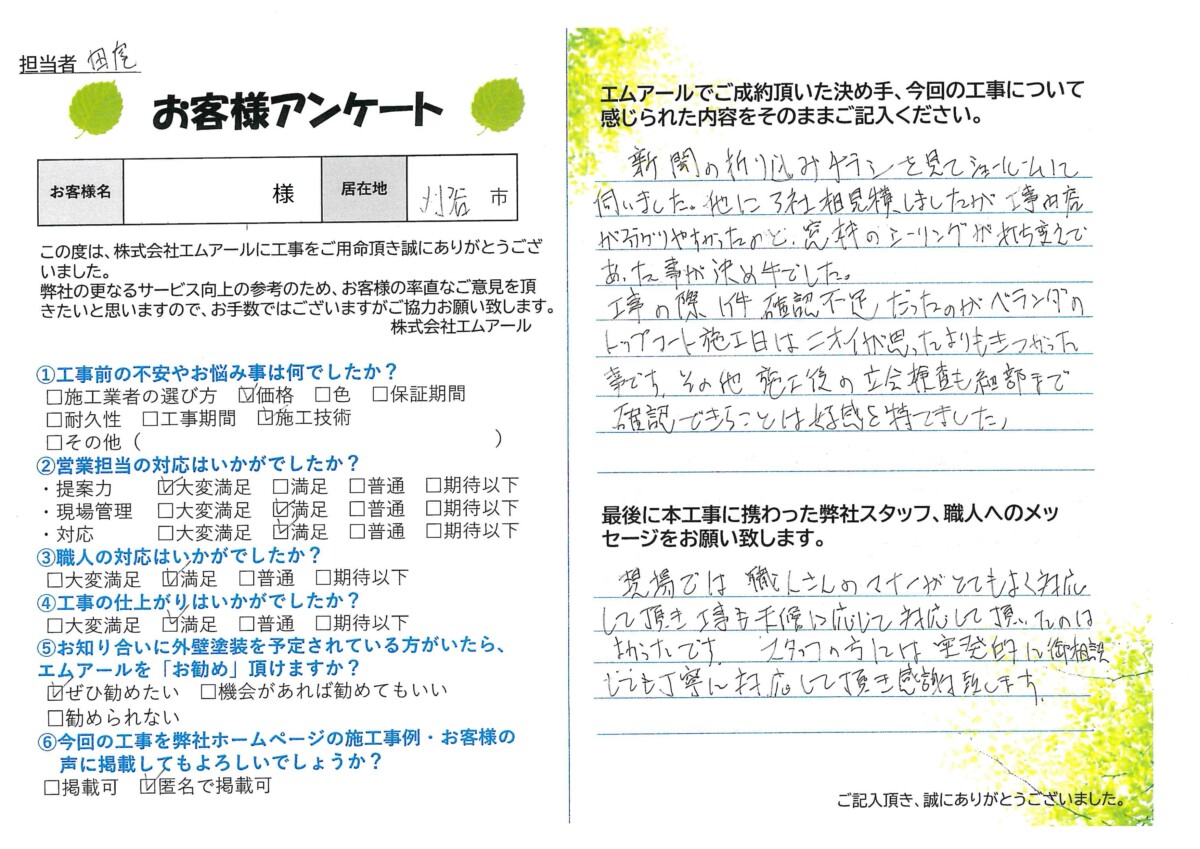 担当者 田尾
お客様アンケート
お客様名 様 居在地 刈谷 市
この度は、株式会社エムアールに工事をご用命頂き誠にありがとうござ
いました。
弊社の更なるサービス向上の参考のため、お客様の率直なご意見を頂
きたいと思いますので、お手数ではございますがご協力お願い致します。
株式会社エムアール
①工事前の不安やお悩み事は何でしたか？
□施工業者の選び方 ☑価格 □色 □保証期間
□耐久性 □工事期間 ☑施工技術
□その他（ ）
②営業担当の対応はいかがでしたか？
・提案力 ☑大変満足 □満足 □普通 □期待以下
・現場管理 □大変満足 ☑満足 □普通 □期待以下
・対応 □大変満足 ☑満足 □普通 □期待以下
③職人の対応はいかがでしたか？
□大変満足 ☑満足 □普通 □期待以下
④工事の仕上がりはいかがでしたか？
□大変満足 ☑満足 □普通 □期待以下
⑤お知り合いに外壁塗装を予定されている方がいたら、
エムアールを「お勧め」頂けますか？
☑ぜひ勧めたい □機会があれば勧めてもいい
□勧められない
⑥今回の工事を弊社ホームページの施工事例・お客様の
声に掲載してもよろしいでしょうか？
□掲載可 ☑匿名で掲載可
エムアールでご成約頂いた決め手、今回の工事について
感じられた内容をそのままご記入ください。
新聞の折り込みチラシを見てショールームに
伺いました。他に3社相見積しましたが工事内容
が分かりやすかったのと、窓枠のシーリングが打ち変えで
あった事が決め手でした。
工事の際1件確認不足だったのがベランダの
トップコート施工日はニオイが思ったよりもきつかった
事です。その他施工後の立会検査も細部まで
確認できることは好感を持てました。
最後に本工事に携わった弊社スタッフ、職人へのメッ
セージをお願い致します。
現場では職人さんのマナーがとてもよく対応
して頂き工事も天候に応じて対応して頂いたのは
よかったです。スタッフの方には突発的に御相談
しても丁寧に対応して頂き感謝致します。
ご記入頂き、誠にありがとうございました。